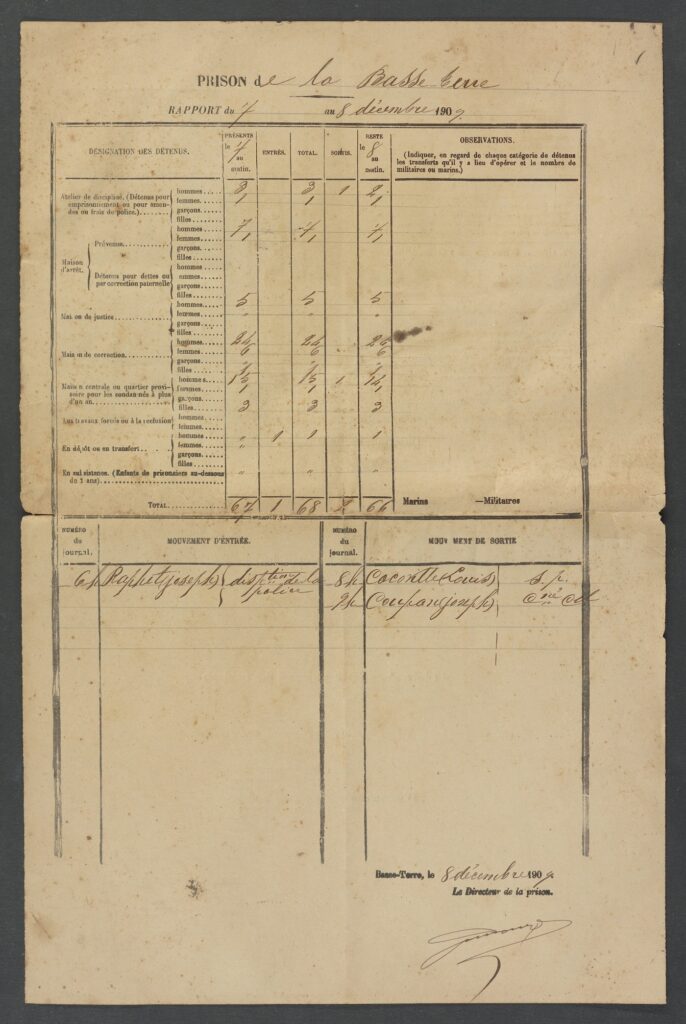 PRISON de la Basse terre
RAPPORT du 7 au 8 décembre 1909
DÉSIGNATION DES DÉTENUS. PRÉSENTS le 7 au matin. ENTRÉS. TOTAL. SORTIS. RESTE le 8 au matin. OBSERVATIONS.
(Indiquer, en regard de chaque catégorie de détenus les transferts qu'il y a lieu d'opérer et le nombre de militaires ou marins.)
Atelier de discipline. (Détenus pour emprisonnement ou pour amendes ou frais de police.)
hommes 3 3 1 2
femmes 1 1 1
garçons
filles
Maison d'arrêt.
Prévenus
hommes 7
femmes 1 1 1
garçons
filles
Détenus pour dettes ou par correction paternelle
hommes
emmes
garçons
filles
Mai on de justice
hommes 5 5 5
femmes " " "
garçons
filles
Mais n de correction
hommes 24 24 24
femmes 6 6 6
garçons
filles
Maison centrale ou quartier provisoire pour les condamnés à plus d'un an
hommes 15 15 1 14
femmes 1 1 1
garçons
filles
Aux travaux forcés ou à la réclusion
hommes 3 3 3
femmes
En dépôt ou en transfert
hommes " 1 1 1
femmes "
garçons
filles
En subsistance. (Enfants de prisonniers au-dessous de 1 ans) " " "
TOTAL 67 1 68 2 66 Marins —Militaires
NUMÉRO du journal. MOUVEMENT D'ENTRÉE. NUMÉRO du journal. MOUV MENT DE SORTIE
6h (Joseph) de la police 8h (Louis) s. p.
2h (Joseph)
Basse-Terre, le 8 décembre 1909
Le Directeur de la prison.